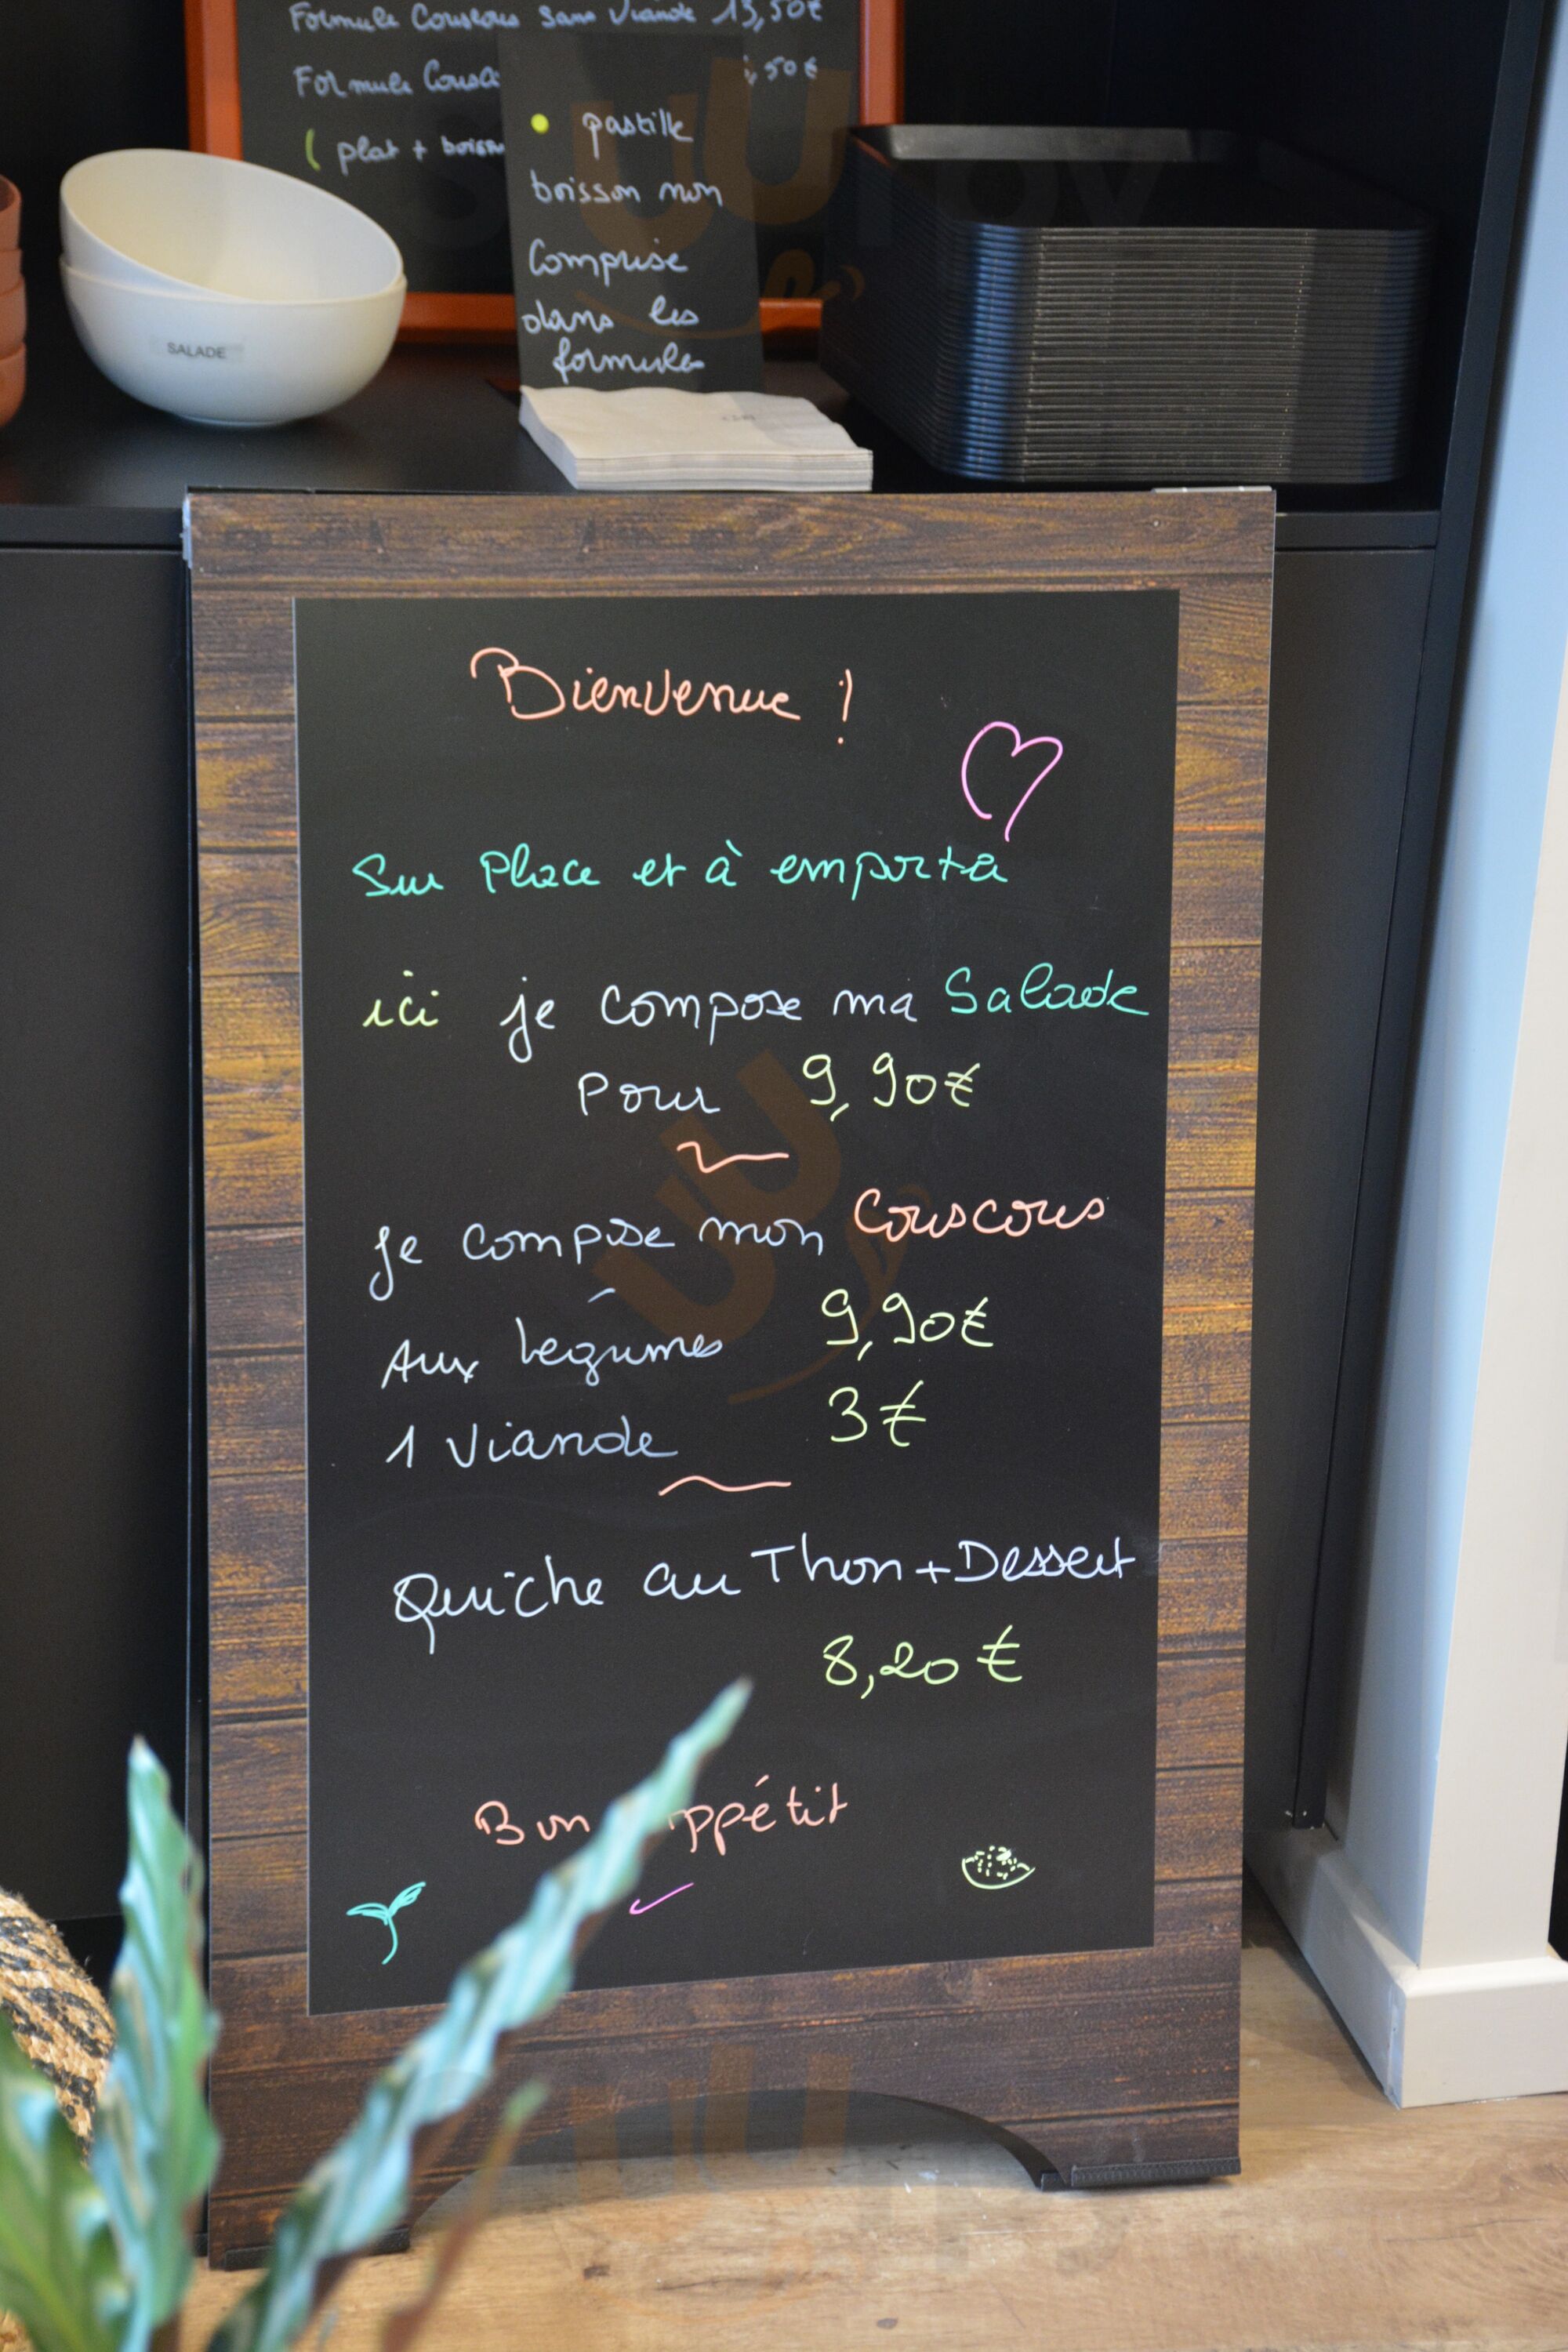 Formule Couscous sans viande 13,50€
Formule Cousc
,50€
( plat + boisson
• pastille
boisson non
comprise
dans les
formules
SALADE
Bienvenue !
Sur Place et à emporter
ici je compose ma Salade
Pour 9,90€
Je compose mon Couscous
Aux légumes 9,90€
1 Viande 3€
Quiche au Thon + Dessert
8,20€
Bon ppétit